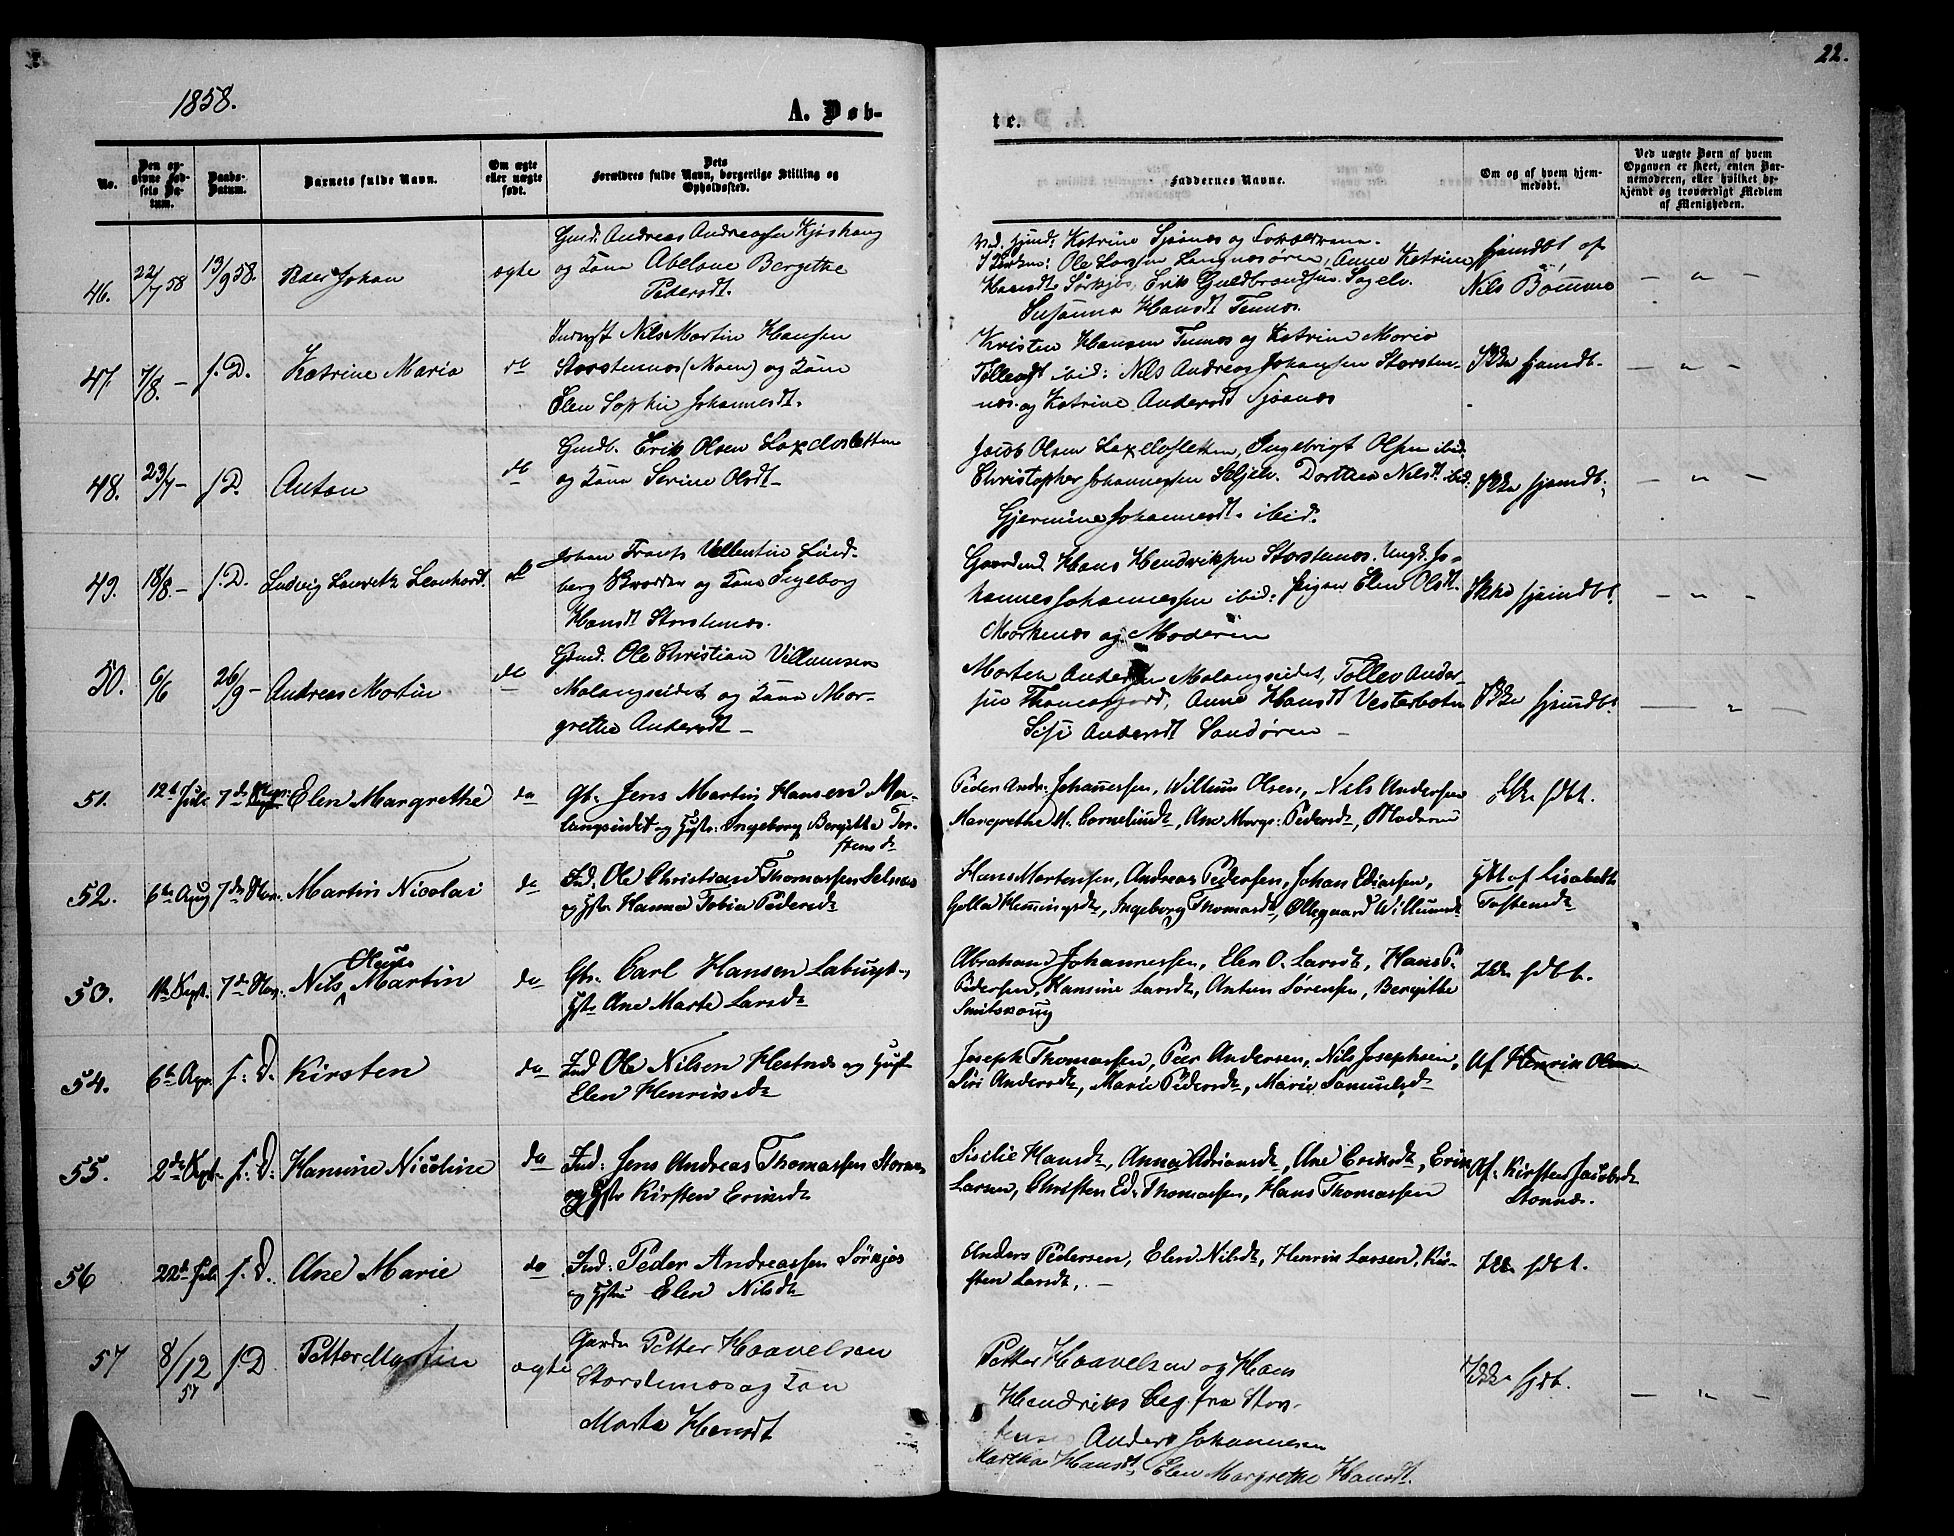 22.
1858.
A. Døb-
te.
No.
Den opgivne Fødsels Datum.
Daabs-Datum.
Barnets fulde Navn.
Om ægte eller uægte født.
Dets Forældres fulde Navn, borgerlige Stilling og Opholdssted.
Faddernes Navne.
Om og af hvem hjemmedøbt.
Ved uægte Børn af hvem Opgaven er skeet, enten Barnemoderen, eller hvilket bekjendt og troværdigt Medlem af Menigheden.
46. 22/7 58 13/9 58. Johan ægte
Gmd: Andreas Andreassen Kjøshaug
og Kone Abelone Bergithe
Pedersdt.
Katrine Sjøanæs og Forældrene.
I Kirken: Ole Larsen Langnæsøren, Anne Katrine
Hansdt Sørkjos, Erik Guldbrandsen Sagelv.
Susanna Hansdt Tennes.
hjemdbt af
Nils Bomme
— " —
47. 7/8. — s. D. Katrine Maria do
Indrgst Nils Martin Hansen
Storstennæs (Moen) og Kone
Elen Sophie Johannesdt.
Kristen Hansen Tennes og Katrine Maria
Tollevsdt ibid: Nils Andreas Johansen Storsten-
næs. og Katrine Andersdt Sjøanæs
Ikke hjemdt.
— " —
48. 23/7 — s D. Anton do
Gmdb. Erik Olsen Laxelvsletten
og Kone Serine Olsdt —
Jacob Olsen Laxelvsletten, Ingebrigt Olsen ibid.
Christopher Johannessen Seljelv. Dorthea Nilsdt ibid:
Gjermine Johannesdt. ibid.
Ikke hjemdt.
— " —
49. 18/8. — s. D. Ludvig Lauritz Leonhard. do
Johan Frants Vallentin Lind-
berg og Kone Ingeborg
Hansdt Storstennæs.
Gaardmd. Hans Hendriksen Storstennæs. Ungk. Jo-
hannes Johannessen ibid: Pigen Elen Olsdt.
Morkenæs og Moderen
Ikke hjemdbt.
— " —
50. 6/6 26/9 — Andreas Martin do
Gmd. Ole Christian Villumsen
Malangseidet og Kone Mar-
grethe Andersdt —
Morten Andersen Malangseidet, Tollev Ander-
sen Thomasjord, Anne Hansdt Vesterbotn
Sisi Andersdt Sandøren —
Ikke hjemdbt.
— " —
51. 12t Juli 7de Novr. Elen Margrethe do
Gb. Jens Martin Hansen Ma-
langseidet og Hstr: Ingeborg Bergitha Tor-
stensd
Peder Andr. Johannessen, Willum Olsen, Nils Andersen
Margrethe M. Corneliusdt, Ane Margr: Pedersdt, Moderen
Ikke hdbt.
52. 6te Aug 7de Nov. Martin Nicolai do
Ind. Ole Christian Thomassen Selnæs
og Hstr Hanna Tobia Pedersdt
Hans Mortensen, Andreas Pedersen, Johan Eliassen,
Golla Flemmingsdt, Ingeborg Thomasdt, Ollegaard Willumsdt
hdbt af Lisabeth
Tostensdt
53. 11te Sept. 7de Nov. Nils Martin do
Gbr. Carl Hansen Labugt
Hstr Ane Marte Larsdt
Abraham Johannessen, Elen O. Larsdt, Hans P.
Pedersen, Hansine Larsdt, Anton Sørensen, Bergithe
Smitskoug
Ikke hdbt.
54. 6te s. D. Kirsten do
Ind Ole Nilsen Hestnæs og Hust
Elen Henriksdt
Joseph Thomassen, Peer Andersen, Nils Josephsen,
Siri Andersdt, Marie Pedersdt, Marie Samuelsdt
Af Henrik Olsen
55. 2de Sept s. D. Hansine Nicoline do
Ind: Jens Andreas Thomassen Stornæs
og Hstr Kirsten Eriksdt
Sisilie Hansdt, Anna Adriansdt, Ane Eriksdt, Erik
Larsen, Christen Edv. Thomassen, Hans Thomassen
Af. Kirsten Jacobsdt
Stornæs.
56 22de Juli s. D. Ane Marie do
Ind: Peder Andreassen Sørkjos
og Hstr Elen Nilsdt
Anders Pedersen, Elen Nilsdt, Henrik Larsen, Kir-
sten Larsdt, —
Ikke hdbt.
57 8/12 57 s. D Petter Martin ægte
Gaardm Petter Haavelsen
Storstennæs og Kon
Marta Hansdt
Petter Haavelsen og Hans
Hendriks beg. fra Stor-
Anders Johannesen
Marthe Hansdt, Elen Margrethe Hansdt.
Ikke hjdb.
— " —